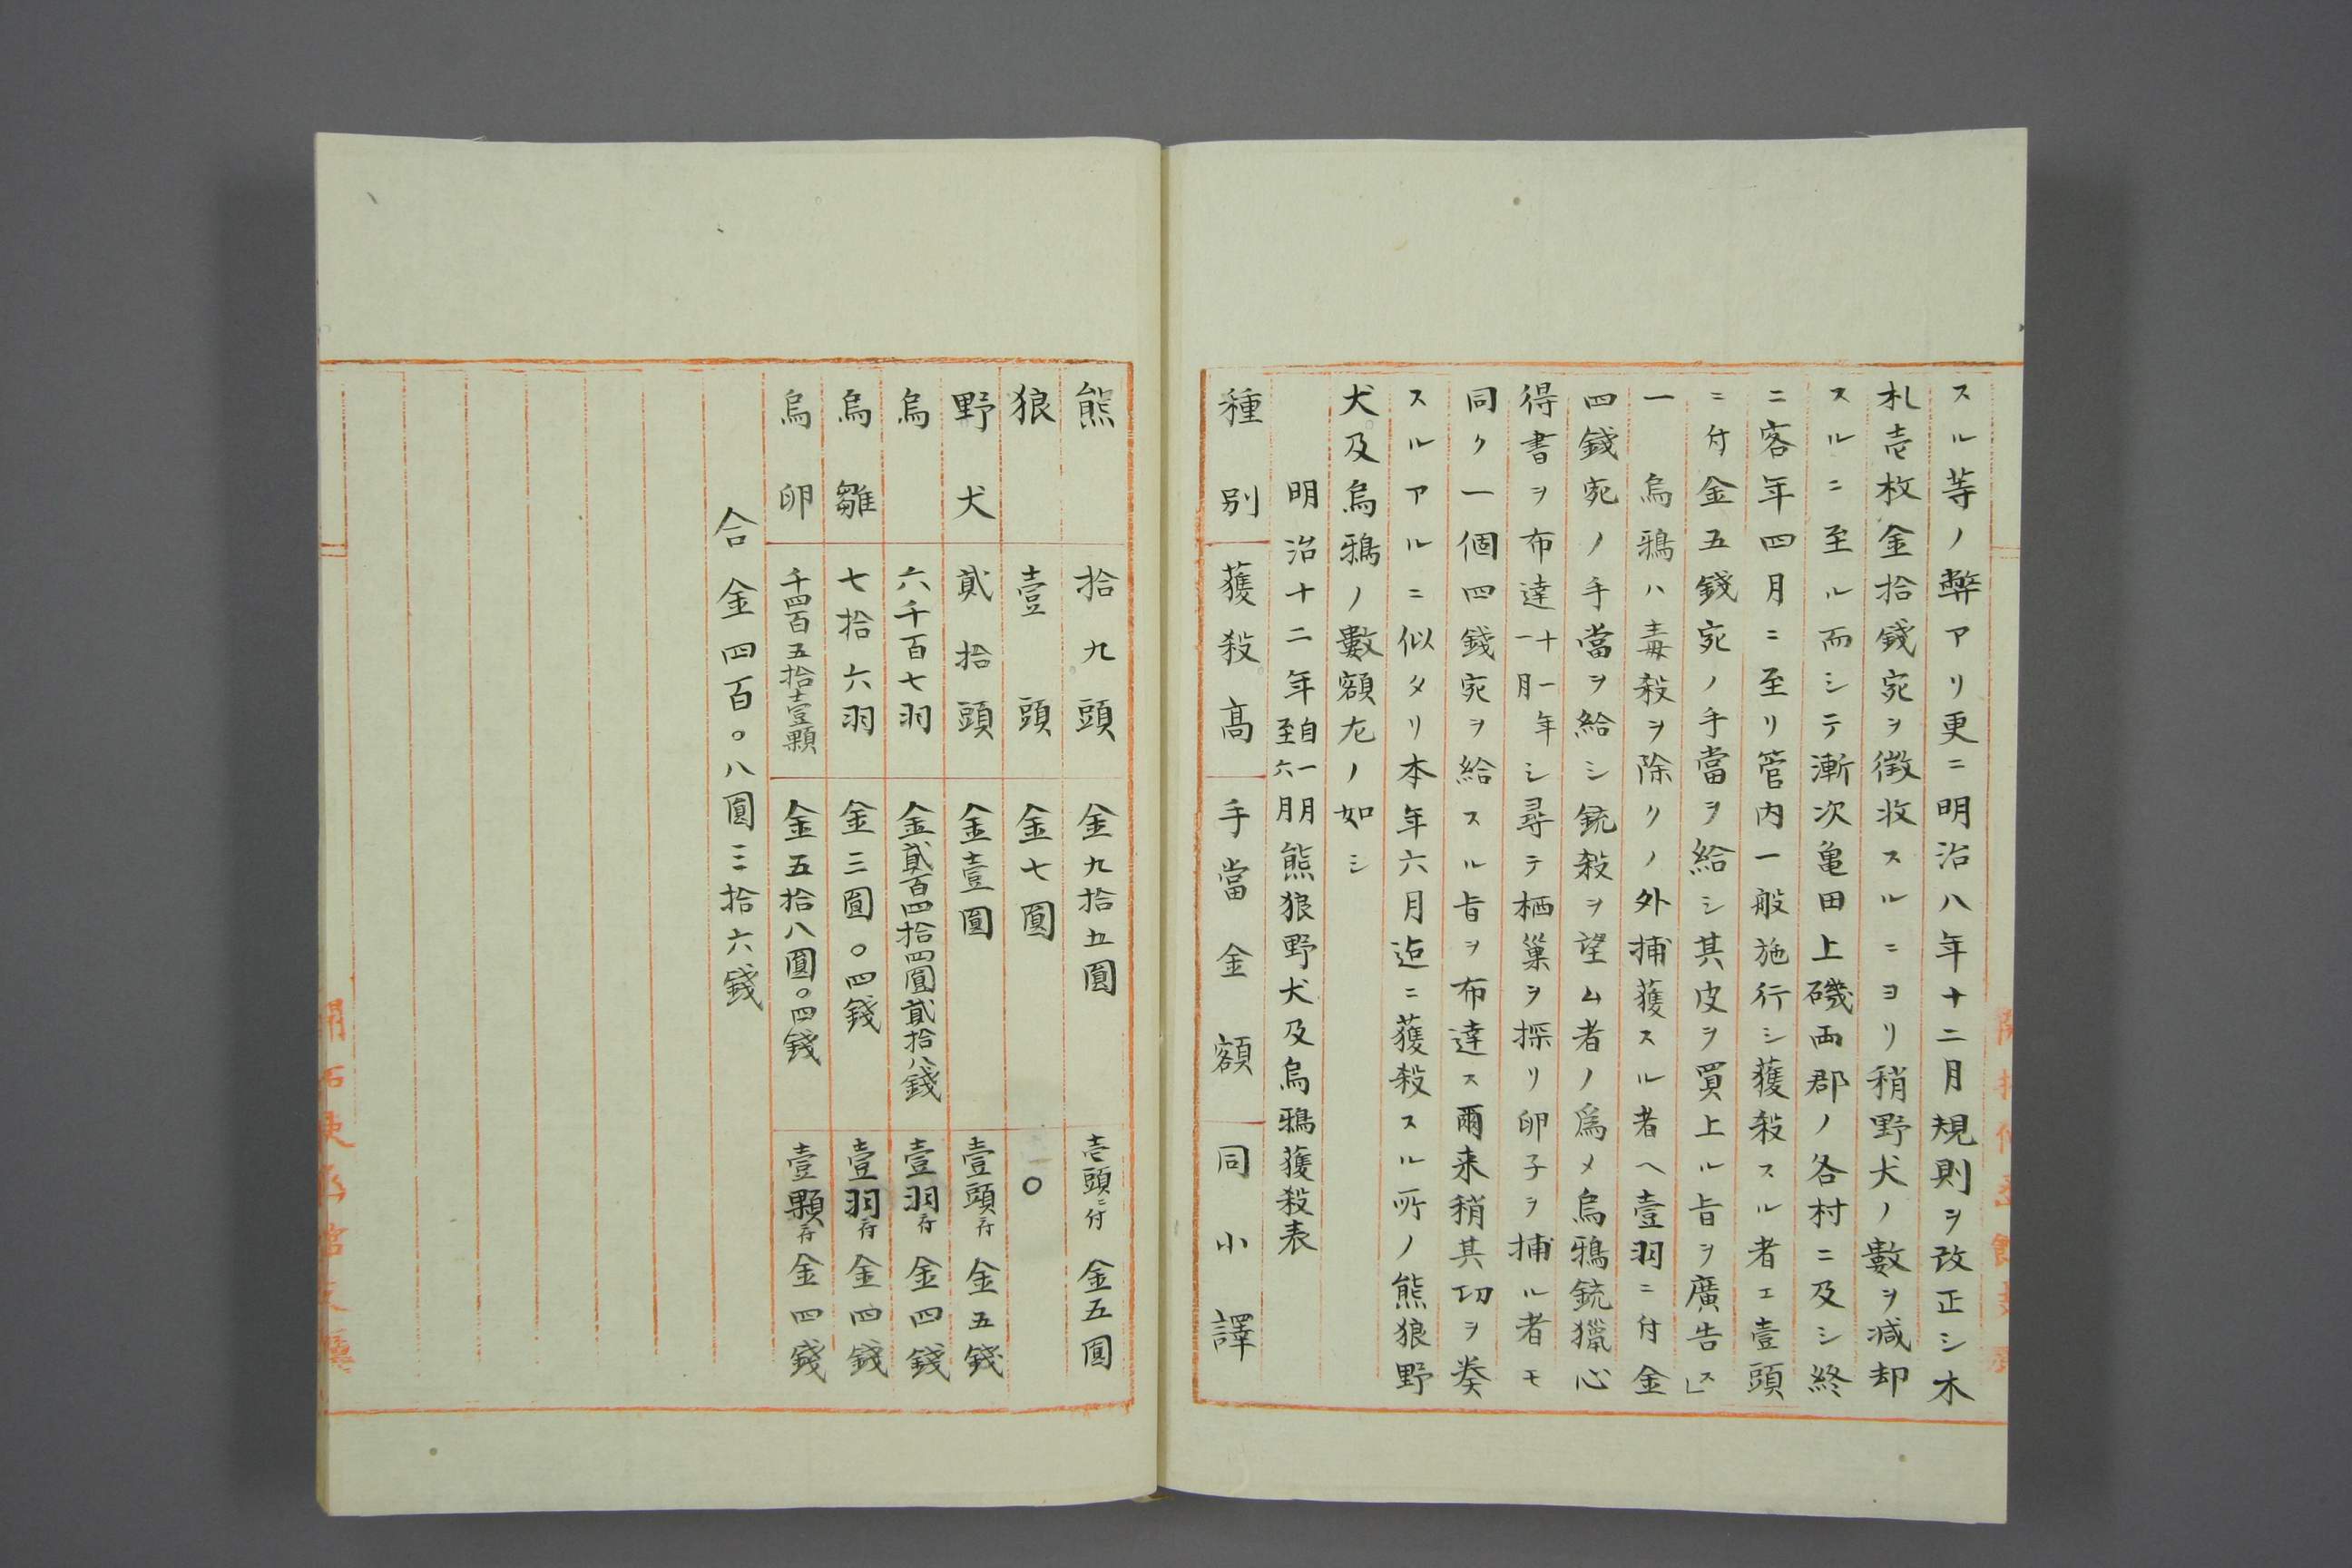 スル等ノ弊アリ更ニ明治八年十二月規則ヲ改正シ木
札壱枚金拾錢宛ヲ徴收スルニヨリ稍野犬ノ數ヲ減却
スルニ至ル而シテ漸次亀田上磯両郡ノ各村ニ及シ終
ニ客年四月ニ至リ管内一般施行シ獲殺スル者エ壹頭
ニ付金五錢宛ノ手當ヲ給シ其皮ヲ買上ル旨ヲ廣告ス」
一 烏鴉ハ毒殺ヲ除クノ外捕獲スル者ヘ壹羽ニ付金
四錢宛ノ手當ヲ給シ銃殺ヲ望ム者ノ爲メ烏鴉銃獵心
得書ヲ布達十一年一月シ尋テ栖巢ヲ探リ卵子ヲ捕ル者モ
同ク一個四錢宛ヲ給スル旨ヲ布達ス爾来稍其功ヲ奏
スルアルニ似タリ本年六月迠ニ獲殺スル所ノ熊狼野
犬及烏鴉ノ數額左ノ如シ
明治十二年自一月至六月熊狼野犬及烏鴉獲殺表
種別 獲殺高 手當金額 同小譯
熊 拾九頭 金九拾五圓 壱頭ニ付金五圓
狼 壹頭 金七圓 〇
野犬 貳拾頭 金壹圓 壹頭ニ付金五錢
烏 六千百七羽 金貳百四拾四圓貳拾八錢 壹羽ニ付金四錢
烏雛 七拾六羽 金三圓〇四錢 壹羽ニ付金四錢
烏卵 千四百五拾壹顆 金五拾八圓〇四錢 壹顆ニ付金四錢
合金四百〇八圓三拾六錢